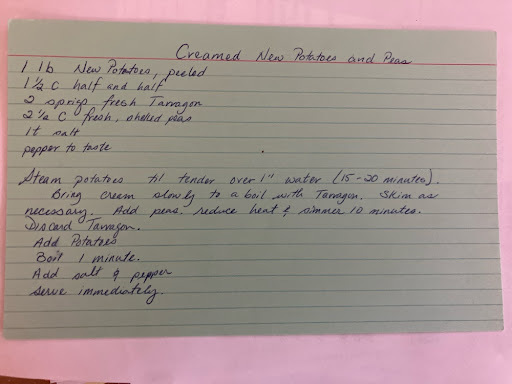 Creamed New Potatoes and Peas
1 lb New Potatoes, peeled
1 1/2 C half and half
2 sprigs fresh Tarragon
2 1/2 C fresh, shelled peas
1 t salt
pepper to taste
Steam potatoes til tender over 1" water (15-20 minutes).
Bring cream slowly to a boil with Tarragon. Skim as
necessary. Add peas, reduce heat & simmer 10 minutes.
Discard Tarragon.
Add Potatoes
Boil 1 minute.
Add salt & pepper
serve immediately.